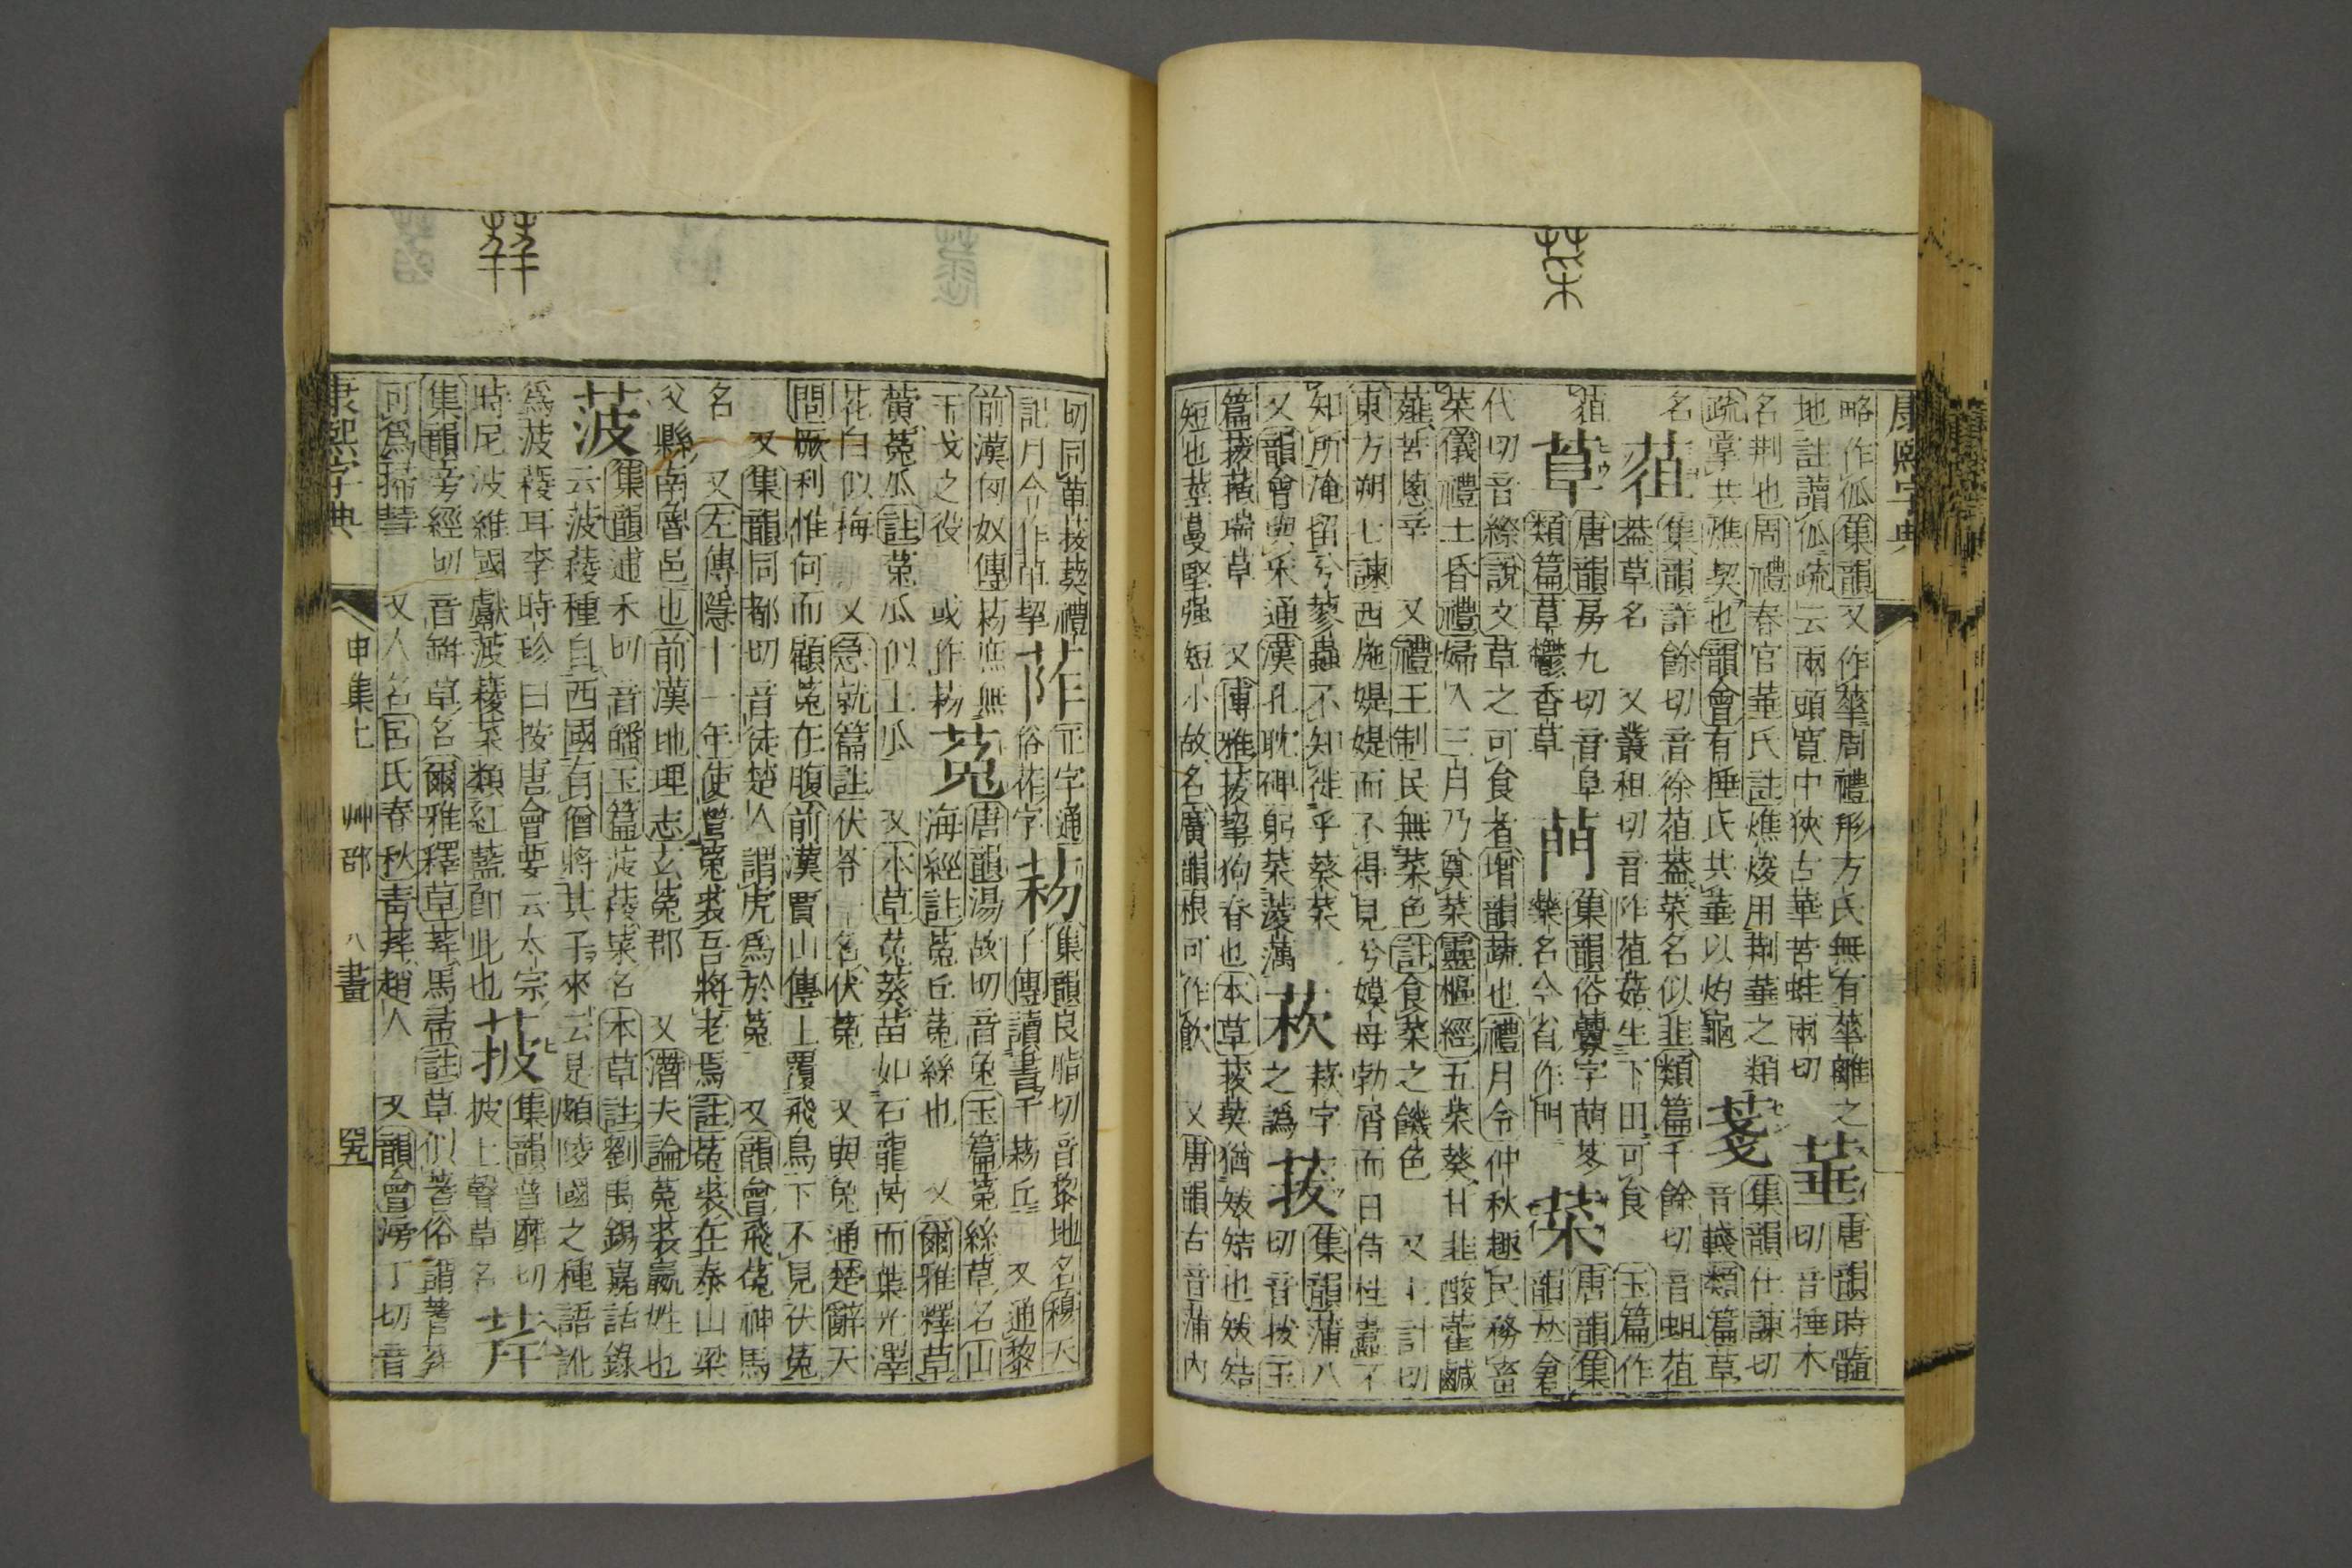 康熙字典
略作㼌集韻又作華周禮形方氏無有華離之
地註讀㼌疏云兩頭寬中狹古華苦蛙兩切
菙
唐韻時髓
切音捶木
名荆也周禮春官菙氏註燋焌用荆菙之類
疏掌共燋契也韻會有捶氏共菙以灼龜
菚
集韻仕諫切
音輚類篇草
名
菹
集韻詳餘切音徐菹葢菜名似韭類篇千餘切音蛆菹
葢草名 又叢租切音阼菹菇生下田可食 玉篇作
蒩
萆
唐韻房九切音阜
類篇草鬱香草
菛
集韻俗虋字菛苳
藥名今省作門
菜
唐韻集
韻𠀤倉
代切音縩說文草之可食者增韻蔬也禮月令仲秋趣民務畜
菜儀禮士昏禮婦入三月乃奠菜靈樞經五菜葵甘韭酸藿鹹
薤苦葱辛 又禮王制民無菜色註食菜之饑色 又七計切
東方朔七諫西施媞媞而不得見兮嫫母勃屑而日侍桂蠹不
知所淹留兮蓼蟲不知徙乎葵菜
又韻會與采通漢孔耽碑躬菜蔆藕
字
之譌
菝
集韻蒲八
切音拔玉
篇菝瑞草 又博雅菝挈狗脊也本草菝葜猶㚄㛃也㚄㛃
短也莖蔓堅强短小故名廣韻根可作飲 又唐韻古音蒲內
切同菝葜禮
記月令作萆挈
莋
正字通
俗葃字
𦯉
集韻良脂切音黎地名穆天
子傳讀書于𦯉丘 又通黎
前漢匈奴傳𦯉庶無
干戈之役 或作𦯉
菟
唐韻湯故切音兔玉篇菟絲草名山
海經註菟丘菟絲也 又爾雅釋草
黃菟瓜註菟瓜似土瓜 又本草菟葵苗如石龍芮而葉光澤
花白似梅 又急就篇註伏苓一名伏菟 又與兔通楚辭天
問厥利惟何而顧菟在腹前漢賈山傳上覆飛鳥下不見伏菟
又集韻同都切音徒楚人謂虎爲於菟 又韻會飛菟神馬
名 又左傳隱十一年使營菟裘吾將老焉註菟裘在泰山梁
父縣南魯邑也前漢地理志玄菟郡 又潛夫論菟裘嬴姓也
菠
集韻逋禾切音皤玉篇菠薐菜名本草註劉禹錫嘉話錄
云菠薐種自西國有僧將其子來云是頗陵國之種語訛
爲菠薐耳李時珍曰按唐會要云太宗
時尼波羅國獻菠薐菜類紅藍卽此也
集韻普靡切
披上聲草名
荓
集韻旁經切音缾草名爾雅釋草荓馬帚註草似蓍俗謂蓍荓
可爲掃彗 又人名呂氏春秋靑荓趙人 又韻會滂丁切音
康熙字典 申集上 艸部 八畫